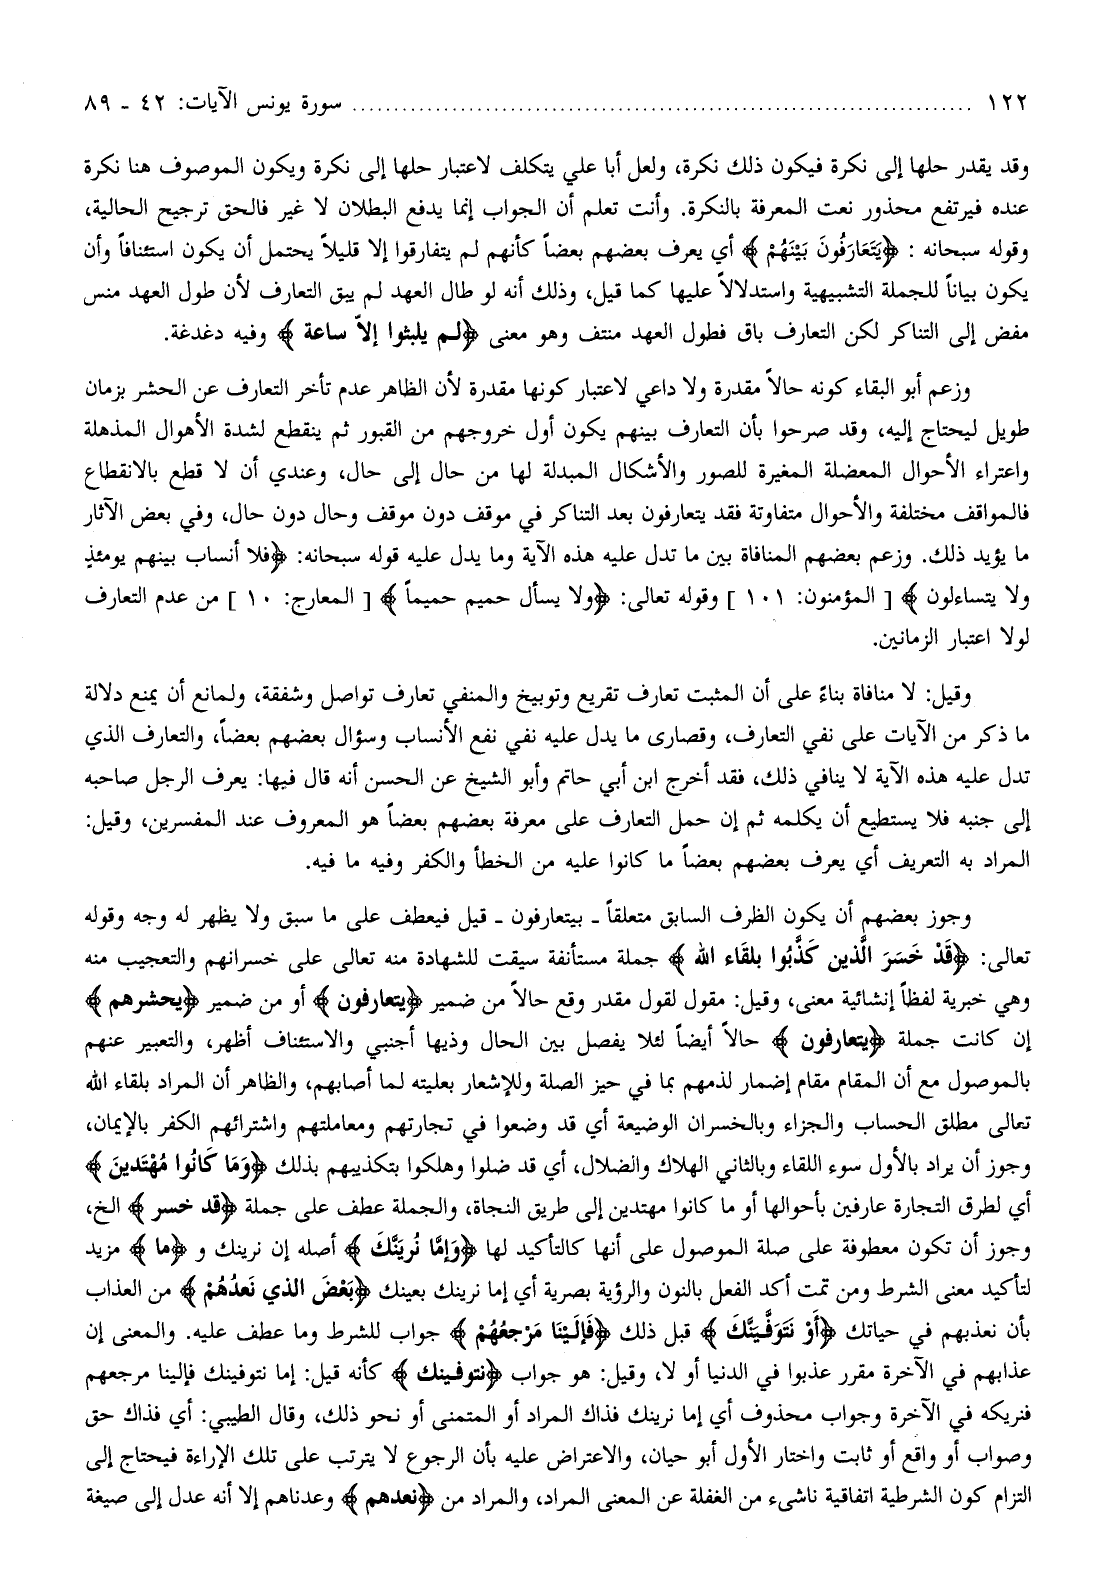 ١٢٢ ........................................................................ سورة يونس الآيات: ٤٢ - ٨٩
وقد يقدر حلها إلى نكرة فيكون ذلك نكرة، ولعل أبا علي يتكلف لاعتبار حلها إلى نكرة ويكون الموصوف هنا نكرة
عنده فيرتفع محذور نعت المعرفة بالنكرة. وأنت تعلم أن الجواب إنما يدفع البطلان لا غير فالحق ترجيح الحالية،
وقوله سبحانه : ﴿يَتَعَارَفُونَ بَيْنَهُمْ ﴾ أي يعرف بعضهم بعضاً كأنهم لم يتفارقوا إلا قليلاً يحتمل أن يكون استئنافاً وأن
يكون بياناً للجملة التشبيهية واستدلالاً عليها كما قيل، وذلك أنه لو طال العهد لم يبق التعارف لأن طول العهد منس
مفض إلى التناكر لكن التعارف باق فطول العهد منتف وهو معنى ﴿لم يلبثوا إلاّ ساعة ﴾ وفيه دغدغة.
وزعم أبو البقاء كونه حالاً مقدرة ولا داعي لاعتبار كونها مقدرة لأن الظاهر عدم تأخر التعارف عن الحشر بزمان
طويل ليحتاج إليه، وقد صرحوا بأن التعارف بينهم يكون أول خروجهم من القبور ثم ينقطع لشدة الأهوال المذهلة
واعتراء الأحوال المعضلة المغيرة للصور والأشكال المبدلة لها من حال إلى حال، وعندي أن لا قطع بالانقطاع
فالمواقف مختلفة والأحوال متفاوتة فقد يتعارفون بعد التناكر في موقف دون موقف وحال دون حال، وفي بعض الآثار
ما يؤيد ذلك. وزعم بعضهم المنافاة بين ما تدل عليه هذه الآية وما يدل عليه قوله سبحانه: ﴿فلا أنساب بينهم يومئذٍ
ولا يتساءلون ﴾ [ المؤمنون: ١٠١ ] وقوله تعالى: ﴿ولا يسأل حميم حميماً ﴾ [ المعارج: ١٠ ] من عدم التعارف
لولا اعتبار الزمانين.
وقيل: لا منافاة بناءً على أن المثبت تعارف تقريع وتوبيخ والمنفي تعارف تواصل وشفقة، ولمانع أن يمنع دلالة
ما ذكر من الآيات على نفي التعارف، وقصارى ما يدل عليه نفي نفع الأنساب وسؤال بعضهم بعضاً، والتعارف الذي
تدل عليه هذه الآية لا ينافي ذلك، فقد أخرج ابن أبي حاتم وأبو الشيخ عن الحسن أنه قال فيها: يعرف الرجل صاحبه
إلى جنبه فلا يستطيع أن يكلمه ثم إن حمل التعارف على معرفة بعضهم بعضاً هو المعروف عند المفسرين، وقيل:
المراد به التعريف أي يعرف بعضهم بعضاً ما كانوا عليه من الخطأ والكفر وفيه ما فيه.
وجوز بعضهم أن يكون الظرف السابق متعلقاً ـ بيتعارفون ـ قيل فيعطف على ما سبق ولا يظهر له وجه وقوله
تعالى: ﴿قَدْ خَسرَ الَّذين كَذَّبُوا بلقَاء الله ﴾ جملة مستأنفة سيقت للشهادة منه تعالى على خسرانهم والتعجيب منه
وهي خبرية لفظاً إنشائية معنى، وقيل: مقول لقول مقدر وقع حالاً من ضمير ﴿يتعارفون ﴾ أو من ضمير ﴿يحشرهم ﴾
إن كانت جملة ﴿يتعارفون ﴾ حالاً أيضاً لئلا يفصل بين الحال وذيها أجنبي والاستئناف أظهر، والتعبير عنهم
بالموصول مع أن المقام مقام إضمار لذمهم بما في حيز الصلة وللإشعار بعليته لما أصابهم، والظاهر أن المراد بلقاء الله
تعالى مطلق الحساب والجزاء وبالخسران الوضيعة أي قد وضعوا في تجارتهم ومعاملتهم واشترائهم الكفر بالإيمان،
وجوز أن يراد بالأول سوء اللقاء وبالثاني الهلاك والضلال، أي قد ضلوا وهلكوا بتكذيبهم بذلك ﴿وَمَا كَانُوا مُهْتَدينَ ﴾
أي لطرق التجارة عارفين بأحوالها أو ما كانوا مهتدين إلى طريق النجاة، والجملة عطف على جملة ﴿قد خسر ﴾ الخ،
وجوز أن تكون معطوفة على صلة الموصول على أنها كالتأكيد لها ﴿وَإمَّا نُريَنَّكَ ﴾ أصله إن نرينك و ﴿ما ﴾ مزيد
لتأكيد معنى الشرط ومن ثمت أكد الفعل بالنون والرؤية بصرية أي إما نرينك بعينك ﴿بَعْضَ الذي نَعدُهُمْ ﴾ من العذاب
بأن نعذبهم في حياتك ﴿أَوْ نَتَوَفَّيَنَّكَ ﴾ قبل ذلك ﴿فَإلَيْنَا مَرْجعُهُمْ ﴾ جواب للشرط وما عطف عليه. والمعنى إن
عذابهم في الآخرة مقرر عذبوا في الدنيا أو لا، وقيل: هو جواب ﴿نتوفينك ﴾ كأنه قيل: إما نتوفينك فإلينا مرجعهم
فنريكه في الآخرة وجواب محذوف أي إما نرينك فذاك المراد أو المتمنى أو نحو ذلك، وقال الطيبي: أي فذاك حق
وصواب أو واقع أو ثابت واختار الأول أبو حيان، والاعتراض عليه بأن الرجوع لا يترتب على تلك الإراءة فيحتاج إلى
التزام كون الشرطية اتفاقية ناشىء من الغفلة عن المعنى المراد، والمراد من ﴿نعدهم ﴾ وعدناهم إلا أنه عدل إلى صيغة